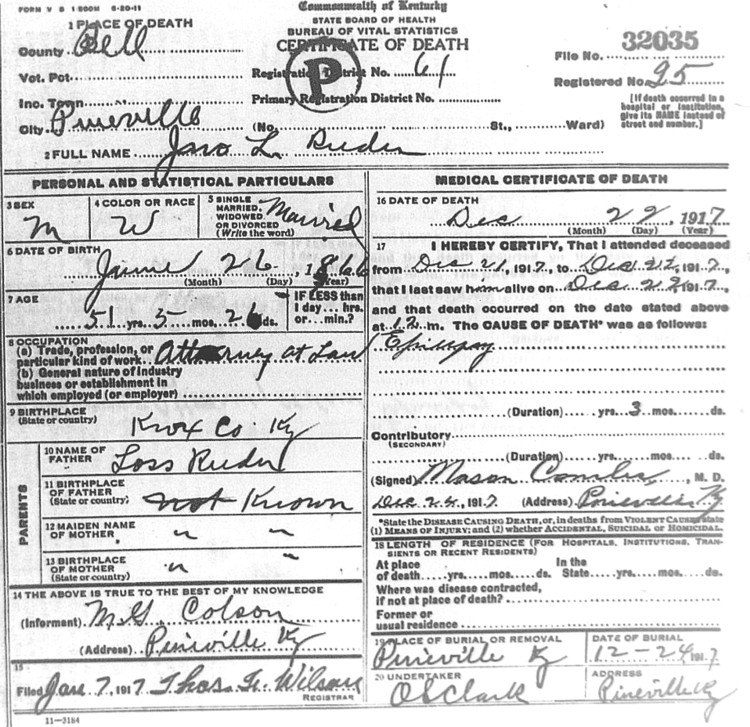 FORM V S 1 500M 6-20-11
Commonwealth of Kentucky
STATE BOARD OF HEALTH
BUREAU OF VITAL STATISTICS
CERTIFICATE OF DEATH
1 PLACE OF DEATH
County Bell
Vot. Pct.
Inc. Town
City Pineville (No. St., Ward)
Registration District No. 61
P
Primary Registration District No.
File No. 32035
Registered No. 95
[If death occurred in a
hospital or institution,
give its NAME instead of
street and number.]
2 FULL NAME L.
PERSONAL AND STATISTICAL PARTICULARS
3 SEX
M
4 COLOR OR RACE
W
5 SINGLE
MARRIED,
WIDOWED
OR DIVORCED
(Write the word)
Married
6 DATE OF BIRTH
June 26, 1866
(Month) (Day) (Year)
7 AGE
51 yrs. 5 mos. 26 ds.
IF LESS than
1 day... hrs.
or... min.?
8 OCCUPATION
(a) Trade, profession, or
particular kind of work Attorney at Law
(b) General nature of industry
business or establishment in
which employed (or employer)
9 BIRTHPLACE
(State or country)
Knox Co. Ky
PARENTS
10 NAME OF
FATHER
Loss
11 BIRTHPLACE
OF FATHER
(State or country)
not Known
12 MAIDEN NAME
OF MOTHER
" "
13 BIRTHPLACE
OF MOTHER
(State or country)
" "
14 THE ABOVE IS TRUE TO THE BEST OF MY KNOWLEDGE
(Informant) M.G. Colson
(Address) Pineville Ky
15
Filed Jan 7, 1917 Thos. Wilson
REGISTRAR
11-3184
MEDICAL CERTIFICATE OF DEATH
16 DATE OF DEATH
Dec 22, 1917
(Month) (Day) (Year)
17 I HEREBY CERTIFY, That I attended deceased
from Dec 21, 1917, to Dec 22, 1917,
that I last saw him alive on Dec 22, 1917,
and that death occurred on the date stated above
at 12 m. The CAUSE OF DEATH* was as follows:
(Duration) yrs. 3 mos. ds.
Contributory
(SECONDARY)
(Duration) yrs. mos. ds.
(Signed) Mason Combs, M. D.
Dec 24, 1917 (Address) Pineville Ky
*State the DISEASE CAUSING DEATH, or, in deaths from VIOLENT CAUSES state
(1) MEANS OF INJURY; and (2) whether ACCIDENTAL, SUICIDAL OR HOMICIDAL.
18 LENGTH OF RESIDENCE (FOR HOSPITALS, INSTITUTIONS, TRAN-
SIENTS OR RECENT RESIDENTS)
At place In the
of death yrs. mos. ds. State yrs. mos. ds.
Where was disease contracted,
if not at place of death?
Former or
usual residence
19 PLACE OF BURIAL OR REMOVAL
Pineville Ky
DATE OF BURIAL
12-24 1917
20 UNDERTAKER
O S Clark
ADDRESS
Pineville Ky